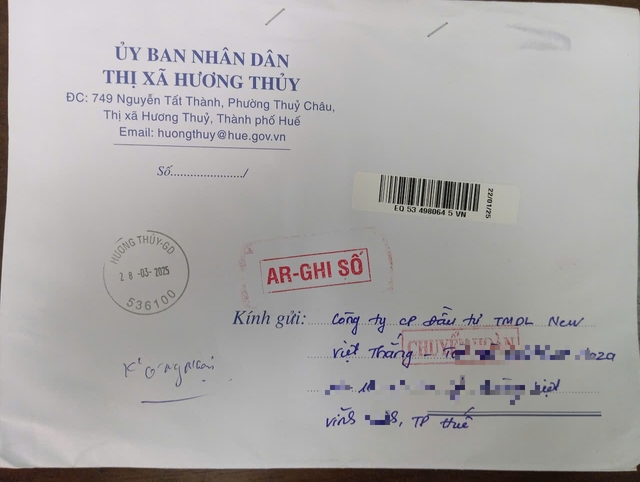 ỦY BAN NHÂN DÂN
THỊ XÃ HƯƠNG THỦY
ĐC: 749 Nguyễn Tất Thành, Phường Thuỷ Châu,
Thị xã Hương Thuỷ, Thành phố Huế
Email: huongthuy@hue.gov.vn
Số....................../
22/01/25
EQ 53 498064 5 VN
HƯƠNG THỦY-GD
28-03-2025
536100
AR-GHI SỐ
Kính gửi: Công ty CP Đầu tư TMDL New
Việt Thắng -
CHUYỂN HOÀN
TP Huế